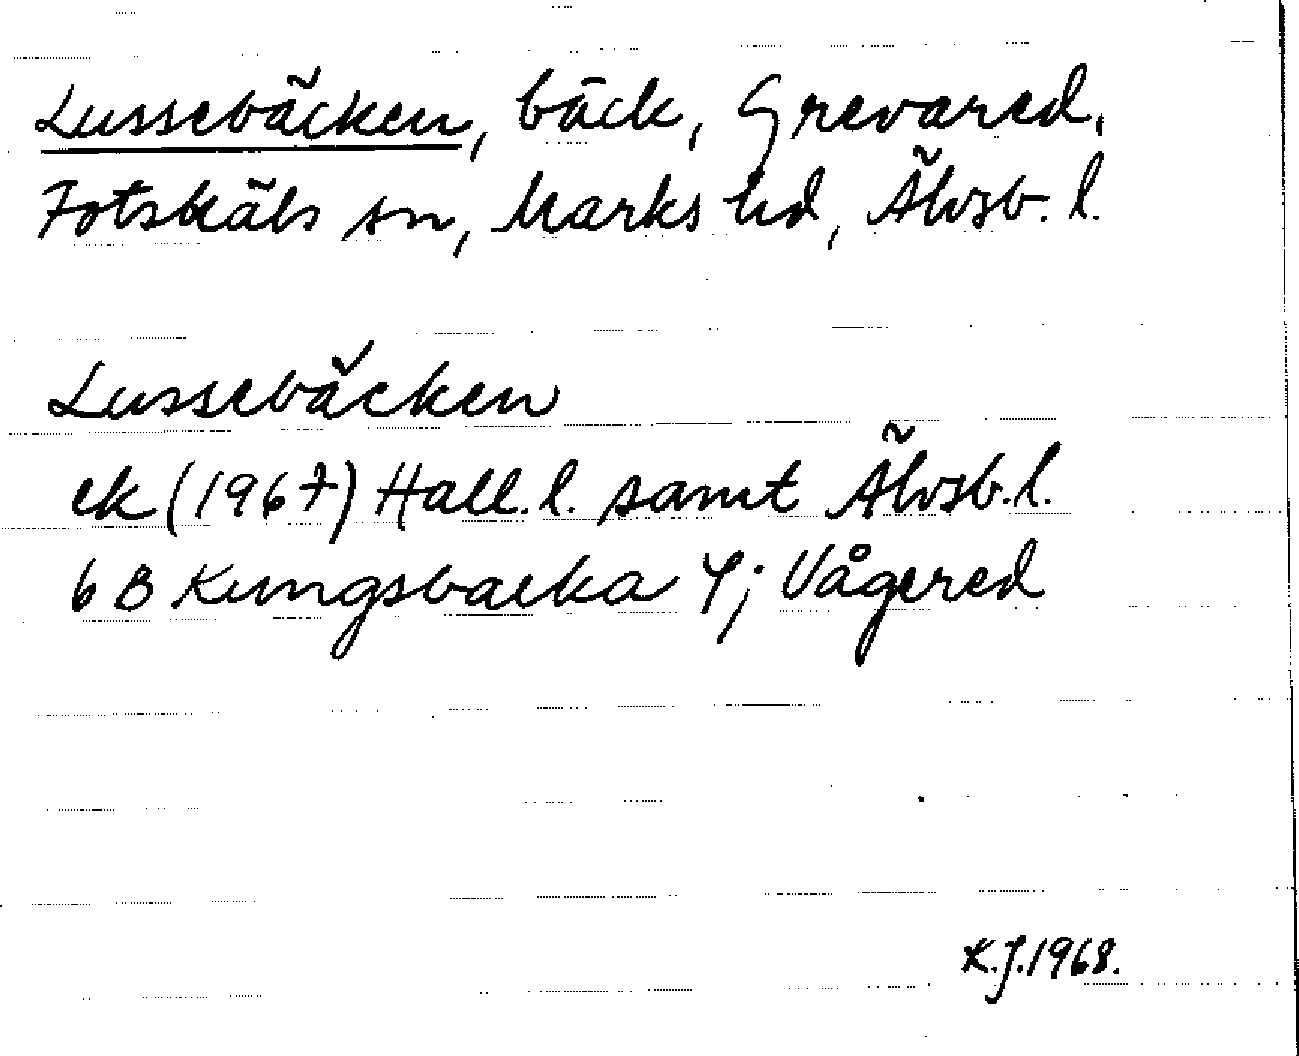 Lussebäcken, bäck, Grevared,
Fotskäls sn, Marks hd, Älvsb. l.
Lussebäcken
ek (1967) Hall. l. samt Älvsb. l.
6 B Kungsbacka ; Vågered
K.J. 1968.